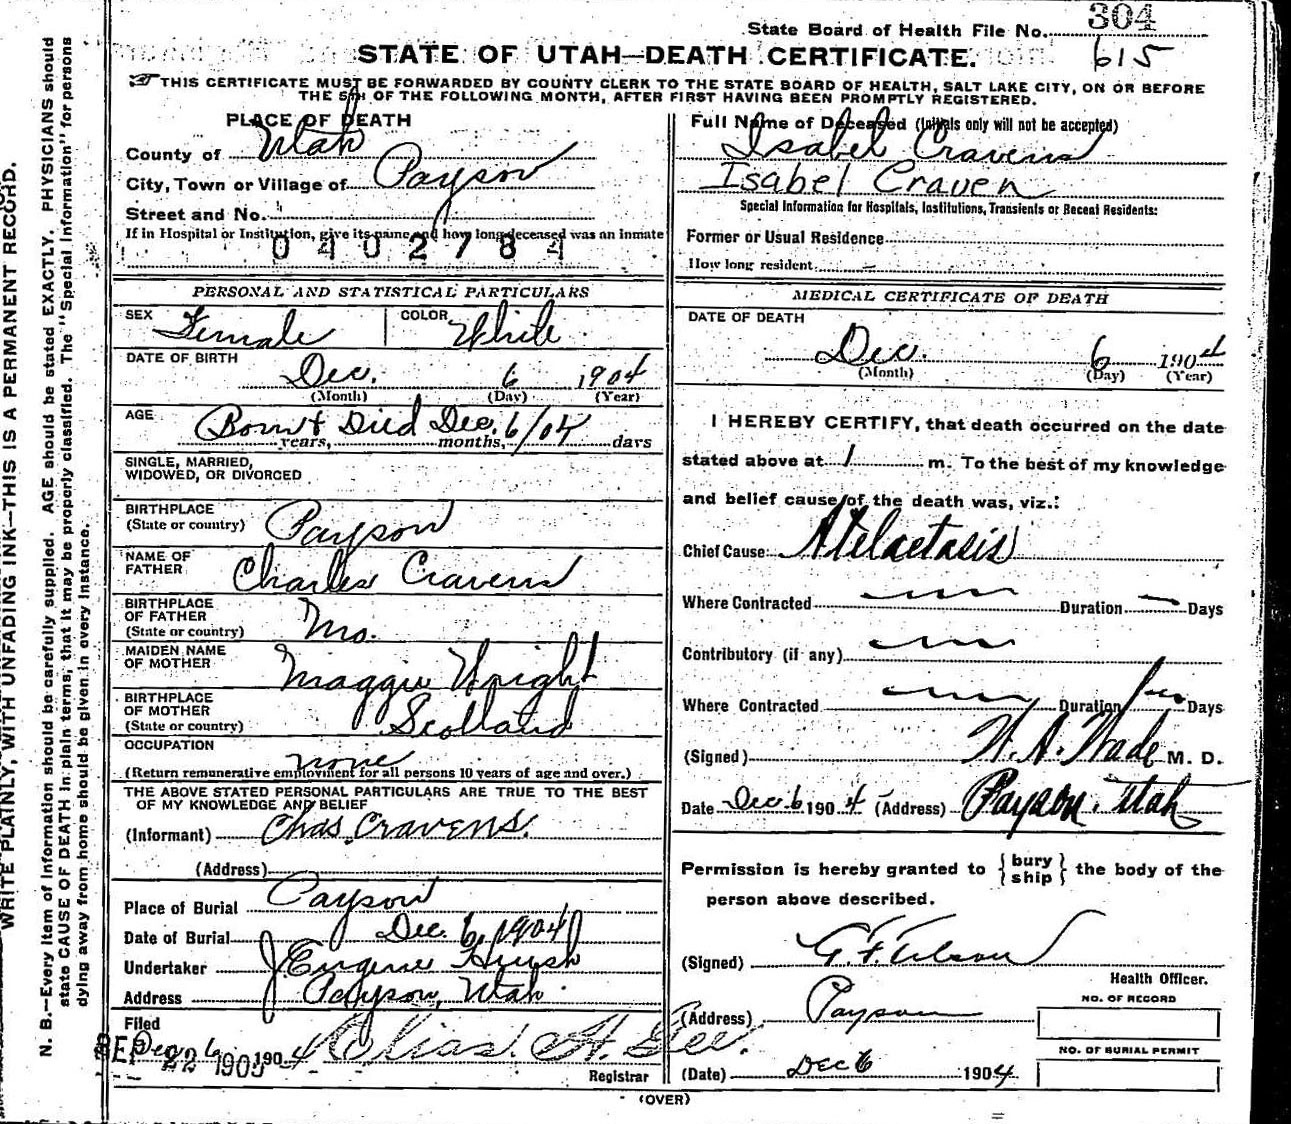 WRITE PLAINLY, WITH UNFADING INK—THIS IS A PERMANENT RECORD.
N. B.—Every item of information should be carefully supplied. AGE should be stated EXACTLY. PHYSICIANS should
state CAUSE OF DEATH in plain terms, that it may be properly classified. The "Special Information" for persons
dying away from home should be given in every instance.
State Board of Health File No. 304
615
STATE OF UTAH—DEATH CERTIFICATE.
THIS CERTIFICATE MUST BE FORWARDED BY COUNTY CLERK TO THE STATE BOARD OF HEALTH, SALT LAKE CITY, ON OR BEFORE
THE 5TH OF THE FOLLOWING MONTH, AFTER FIRST HAVING BEEN PROMPTLY REGISTERED.
PLACE OF DEATH
County of Utah
City, Town or Village of Payson
Street and No.
If in Hospital or Institution, give its name and how long deceased was an inmate
0402784
PERSONAL AND STATISTICAL PARTICULARS
SEX Female COLOR White
DATE OF BIRTH
Dec. 6 1904
(Month) (Day) (Year)
AGE Born & Died Dec. 6/04
years, months, days
SINGLE, MARRIED,
WIDOWED, OR DIVORCED
BIRTHPLACE
(State or country) Payson
NAME OF
FATHER Charles Cravens
BIRTHPLACE
OF FATHER
(State or country) Mo.
MAIDEN NAME
OF MOTHER Maggie Wright
BIRTHPLACE
OF MOTHER
(State or country) Scotland
OCCUPATION none
(Return remunerative employment for all persons 10 years of age and over.)
THE ABOVE STATED PERSONAL PARTICULARS ARE TRUE TO THE BEST
OF MY KNOWLEDGE AND BELIEF
(Informant) Chas. Cravens.
(Address)
Place of Burial Payson
Date of Burial Dec. 6, 1904
Undertaker J. Eugene
Address Payson, Utah
Filed
Dec 6 1904 Elias. H. Gee.
SEP 22 1905
Registrar
Full Name of Deceased (Initials only will not be accepted)
Isabel Cravens
Isabel Craven
Special Information for Hospitals, Institutions, Transients or Recent Residents:
Former or Usual Residence
How long resident
MEDICAL CERTIFICATE OF DEATH
DATE OF DEATH
Dec. 6 1904
(Month) (Day) (Year)
I HEREBY CERTIFY, that death occurred on the date
stated above at 1 m. To the best of my knowledge
and belief cause of the death was, viz.:
Chief Cause: Atelactasis
Where Contracted Duration Days
Contributory (if any)
Where Contracted Duration Days
(Signed) M. D.
Date Dec 6 1904 (Address) Payson. Utah
Permission is hereby granted to { bury
ship } the body of the
person above described.
(Signed)
Health Officer.
(Address) Payson
(Date) Dec 6 1904
NO. OF RECORD
NO. OF BURIAL PERMIT
(OVER)